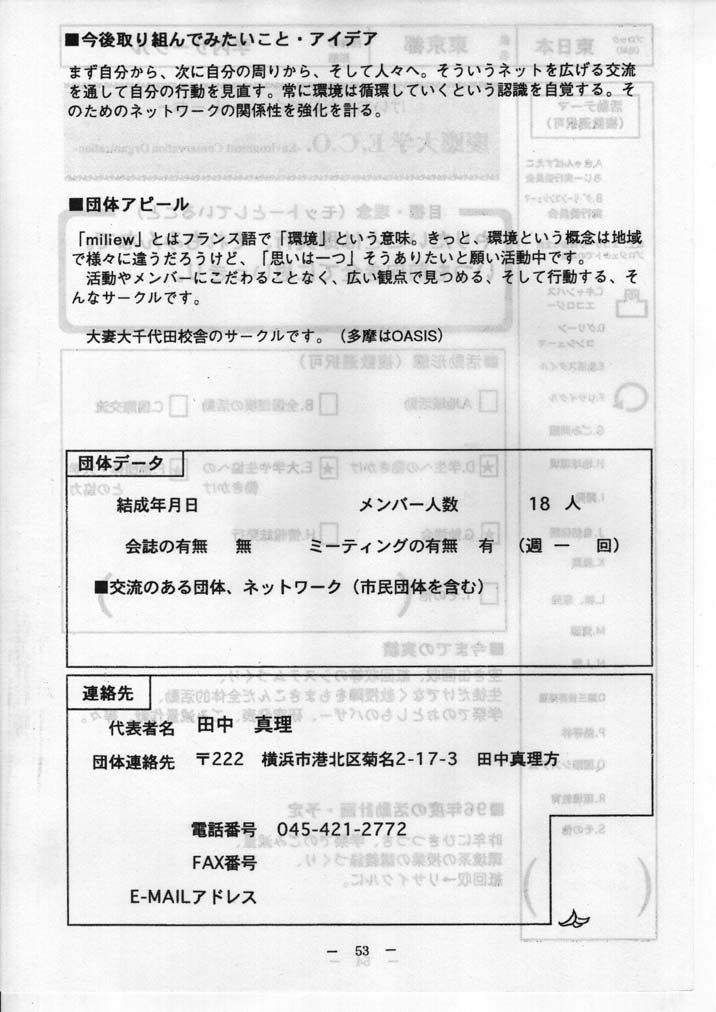 ■今後取り組んでみたいこと・アイデア
まず自分から、次に自分の周りから、そして人々へ。そういうネットを広げる交流
を通して自分の行動を見直す。常に環境は循環していくという認識を自覚する。そ
のためのネットワークの関係性を強化を計る。
■団体アピール
「miliew」とはフランス語で「環境」という意味。きっと、環境という概念は地域
で様々に違うだろうけど、「思いは一つ」そうありたいと願い活動中です。
活動やメンバーにこだわることなく、広い観点で見つめる、そして行動する、そ
んなサークルです。
大妻大千代田校舎のサークルです。（多摩はOASIS）
団体データ
結成年月日 メンバー人数 18 人
会誌の有無 無 ミーティングの有無 有 （週 一 回）
■交流のある団体、ネットワーク（市民団体を含む）
連絡先
代表者名 田中 真理
団体連絡先 〒222 横浜市港北区菊名2-17-3 田中真理方
電話番号 045-421-2772
FAX番号
E-MAILアドレス
－ 53 －